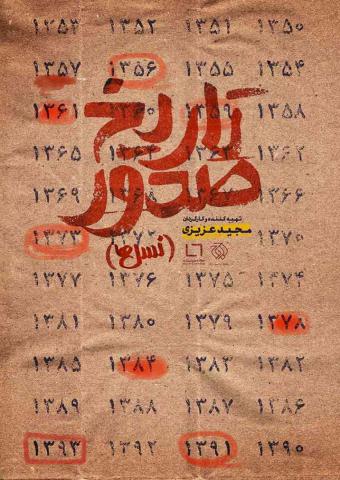 ۱۳۵۰ ۱۳۵۱ ۱۳۵۲ ۱۳۵۳
۱۳۵۴ ۱۳۵۵ ۱۳۵۶ ۱۳۵۷
۱۳۵۸ ۱۳۵۹ ۱۳۶۰ ۱۳۶۱
تاریخ
۱۳۶۲ ۱۳۶۳ ۱۳۶۴ ۱۳۶۵
صدور
۱۳۶۶ ۱۳۶۷ ۱۳۶۸ ۱۳۶۹
تهیه کننده و کارگردان
مجید عزیزی
۱۳۷۰ ۱۳۷۲ ۱۳۷۳
(نسل‌ها)
۱۳۷۴ ۱۳۷۵ ۱۳۷۶ ۱۳۷۷
۱۳۷۸ ۱۳۷۹ ۱۳۸۰ ۱۳۸۱
۱۳۸۲ ۱۳۸۳ ۱۳۸۴ ۱۳۸۵
۱۳۸۶ ۱۳۸۷ ۱۳۸۸ ۱۳۸۹
۱۳۹۰ ۱۳۹۱ ۱۳۹۲ ۱۳۹۳